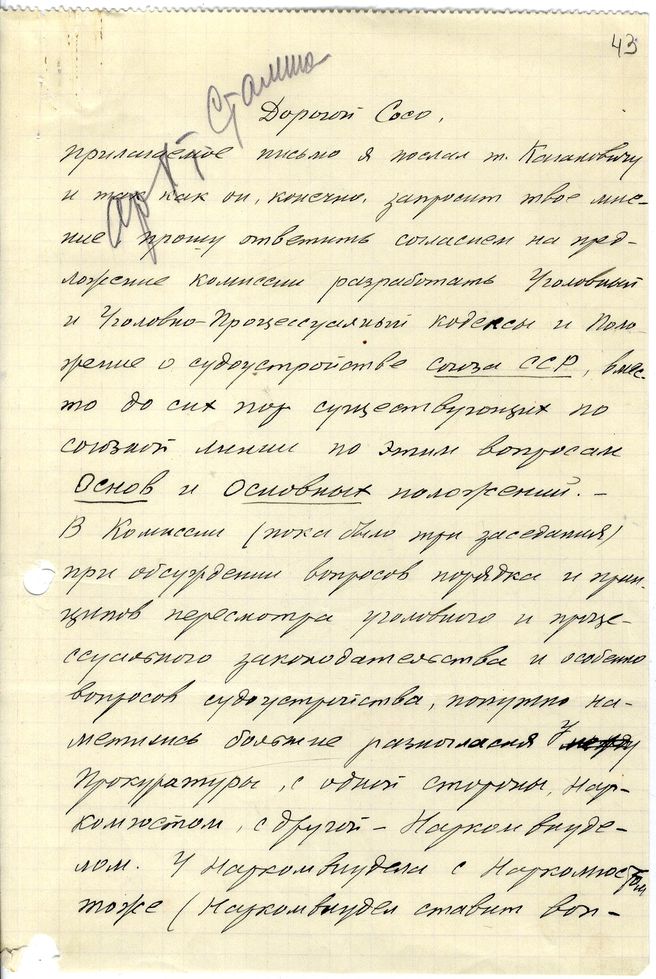 43
Т. Сталина
Дорогой Сосо,
прилагаемое письмо я послал т. Кагановичу
и так как он, конечно, запросит твое мне-
ние прошу ответить согласием на пред-
ложение комиссии разработать Уголовный
и Уголовно-Процессуальный кодексы и Поло-
жение о судоустройстве союза ССР, вмес-
то до сих пор существующих по
союзной линии по этим вопросам
Основ и Основных положений. –
В Комиссии (пока было три заседания)
при обсуждении вопросов порядка и прин-
ципов пересмотра уголовного и проце-
ссуального законодательства и особенно
вопросов судоустройства, попутно на-
метились большие разногласия у
Прокуратуры, с одной стороны, Нар-
комюстом, с другой – Наркомвнуде-
лом. У Наркомвнудела с Наркомюстом
тоже (Наркомвнудел ставит воп-